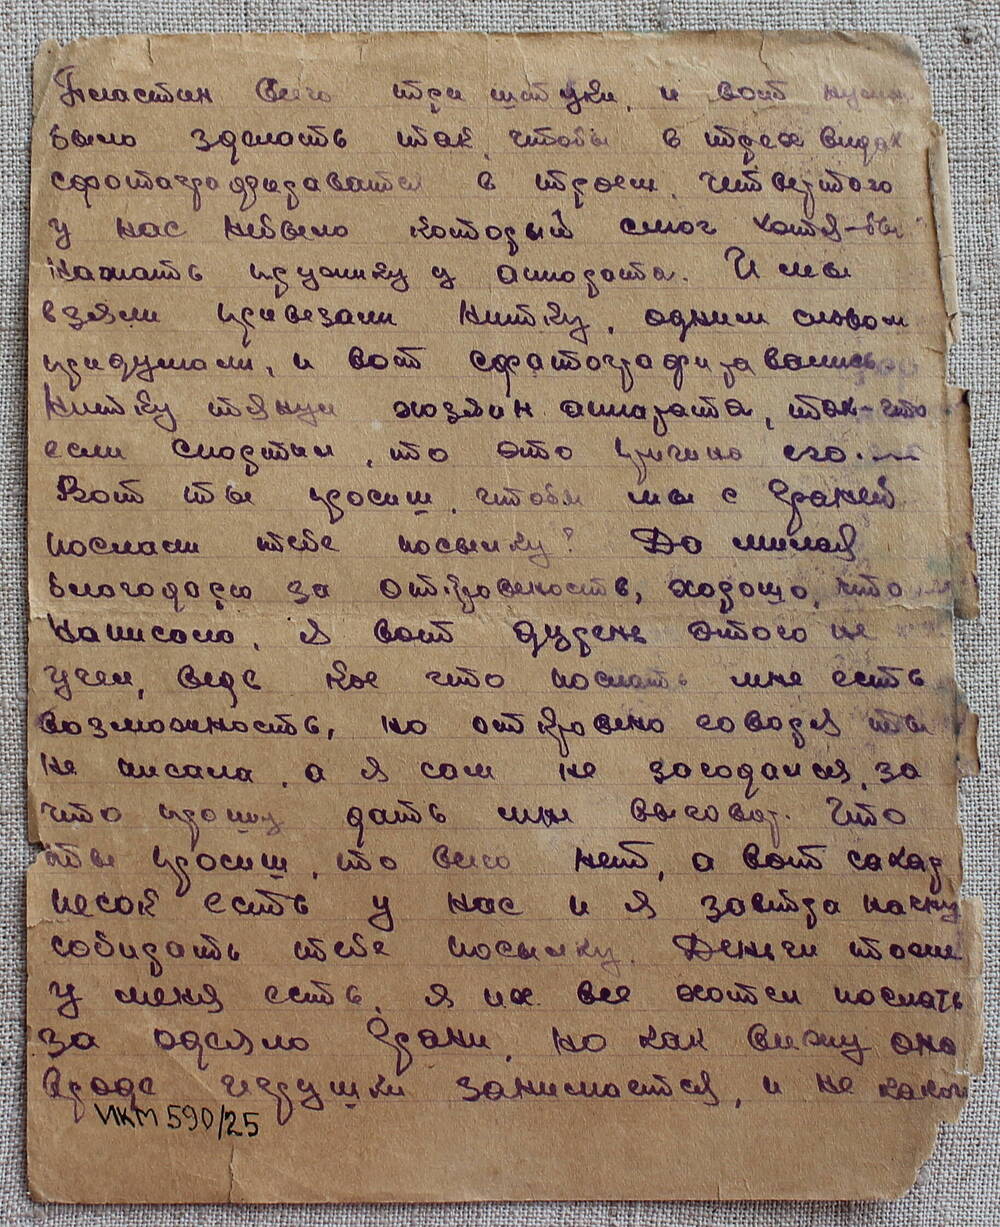 Пластин всего три штуки, и вот нужно
было зделать так, чтобы в трех видах
сфотографироваться в троем, четвертого
у нас небыло который смог хотя-бы
нажать пружинку у аппарата. И мы
взяли привезали нитку, одним словом
придумали, и вот сфотографировались
нитку тянул хозяин аппарата, так-что
если спортил, то это причина его.
Вот ты просиш, чтобы мы с Граней
послали тебе посылку? Да милая
благодарю за откровеность, хорошо, что
написала, я вот дурень этого не
учел, ведь кое что послать мне есть
возможность, но откровено говоря ты
не писала, а я сам не загодался, за
что прошу дать мне выговор. Что
ты просиш, то всего нет, а вот сахар
песок есть у нас и я завтра начну
собирать тебе посылку. Деньги тоже
у меня есть, я их все хотел послать
за одеяло Грани, но как вижу она
вроде игрушки занимается, и не какой
ИКМ 590/25